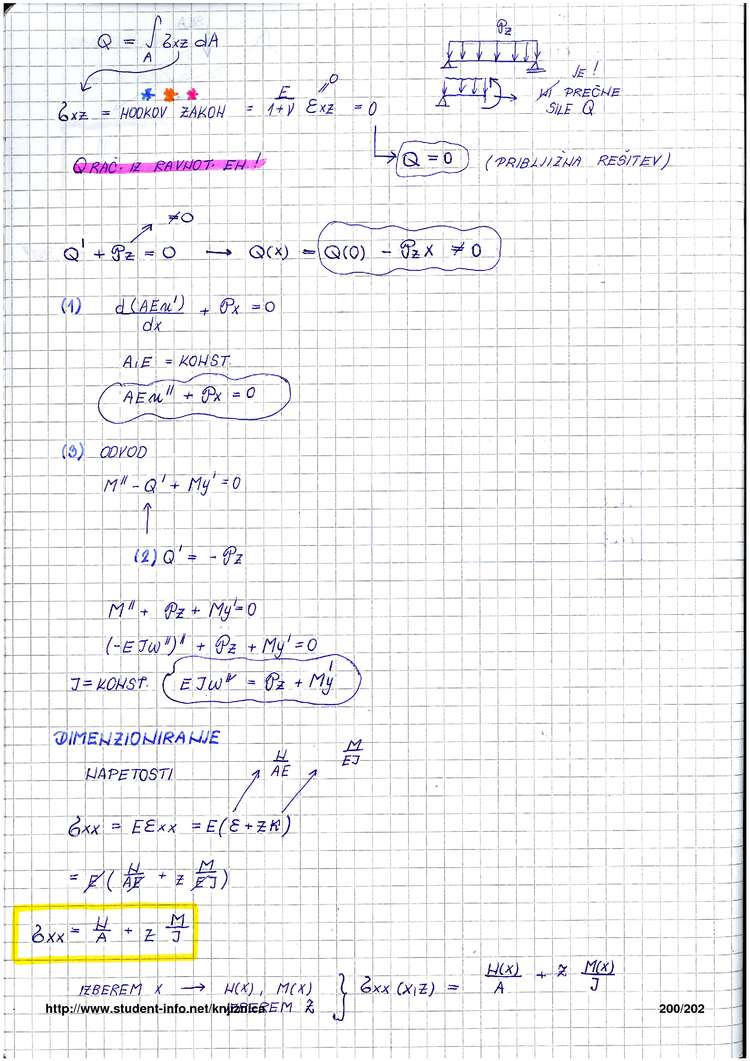 Q = ∫_A σxz dA
Pz
σxz = HOOKOV ZAKON = E/(1+ν) εxz = 0
// 0
JE!
NI PREČNE
SILE Q
Q RAČ. IZ RAVNOT. EN.!
Q = 0 (PRIBLIŽNA REŠITEV)
≠0
Q' + Pz = 0 → Q(x) = Q(0) - Pz x ≠ 0
(1) d(AEu')/dx + Px = 0
A,E = KONST.
AEu'' + Px = 0
(3) ODVOD
M'' - Q' + My' = 0
(2) Q' = - Pz
M'' + Pz + My' = 0
(-EJw'')'' + Pz + My' = 0
J = KONST. EJw'''' = Pz + My'
DIMENZIONIRANJE
NAPETOSTI
N/AE M/EJ
σxx = Eεxx = E(ε + zκ)
= E (N/AE + z M/EJ)
σxx = N/A + z M/J
IZBEREM x → N(x), M(x)
IZBEREM z
} σxx (x,z) = N(x)/A + z M(x)/J
http://www.student-info.net/knjiznica
200/202